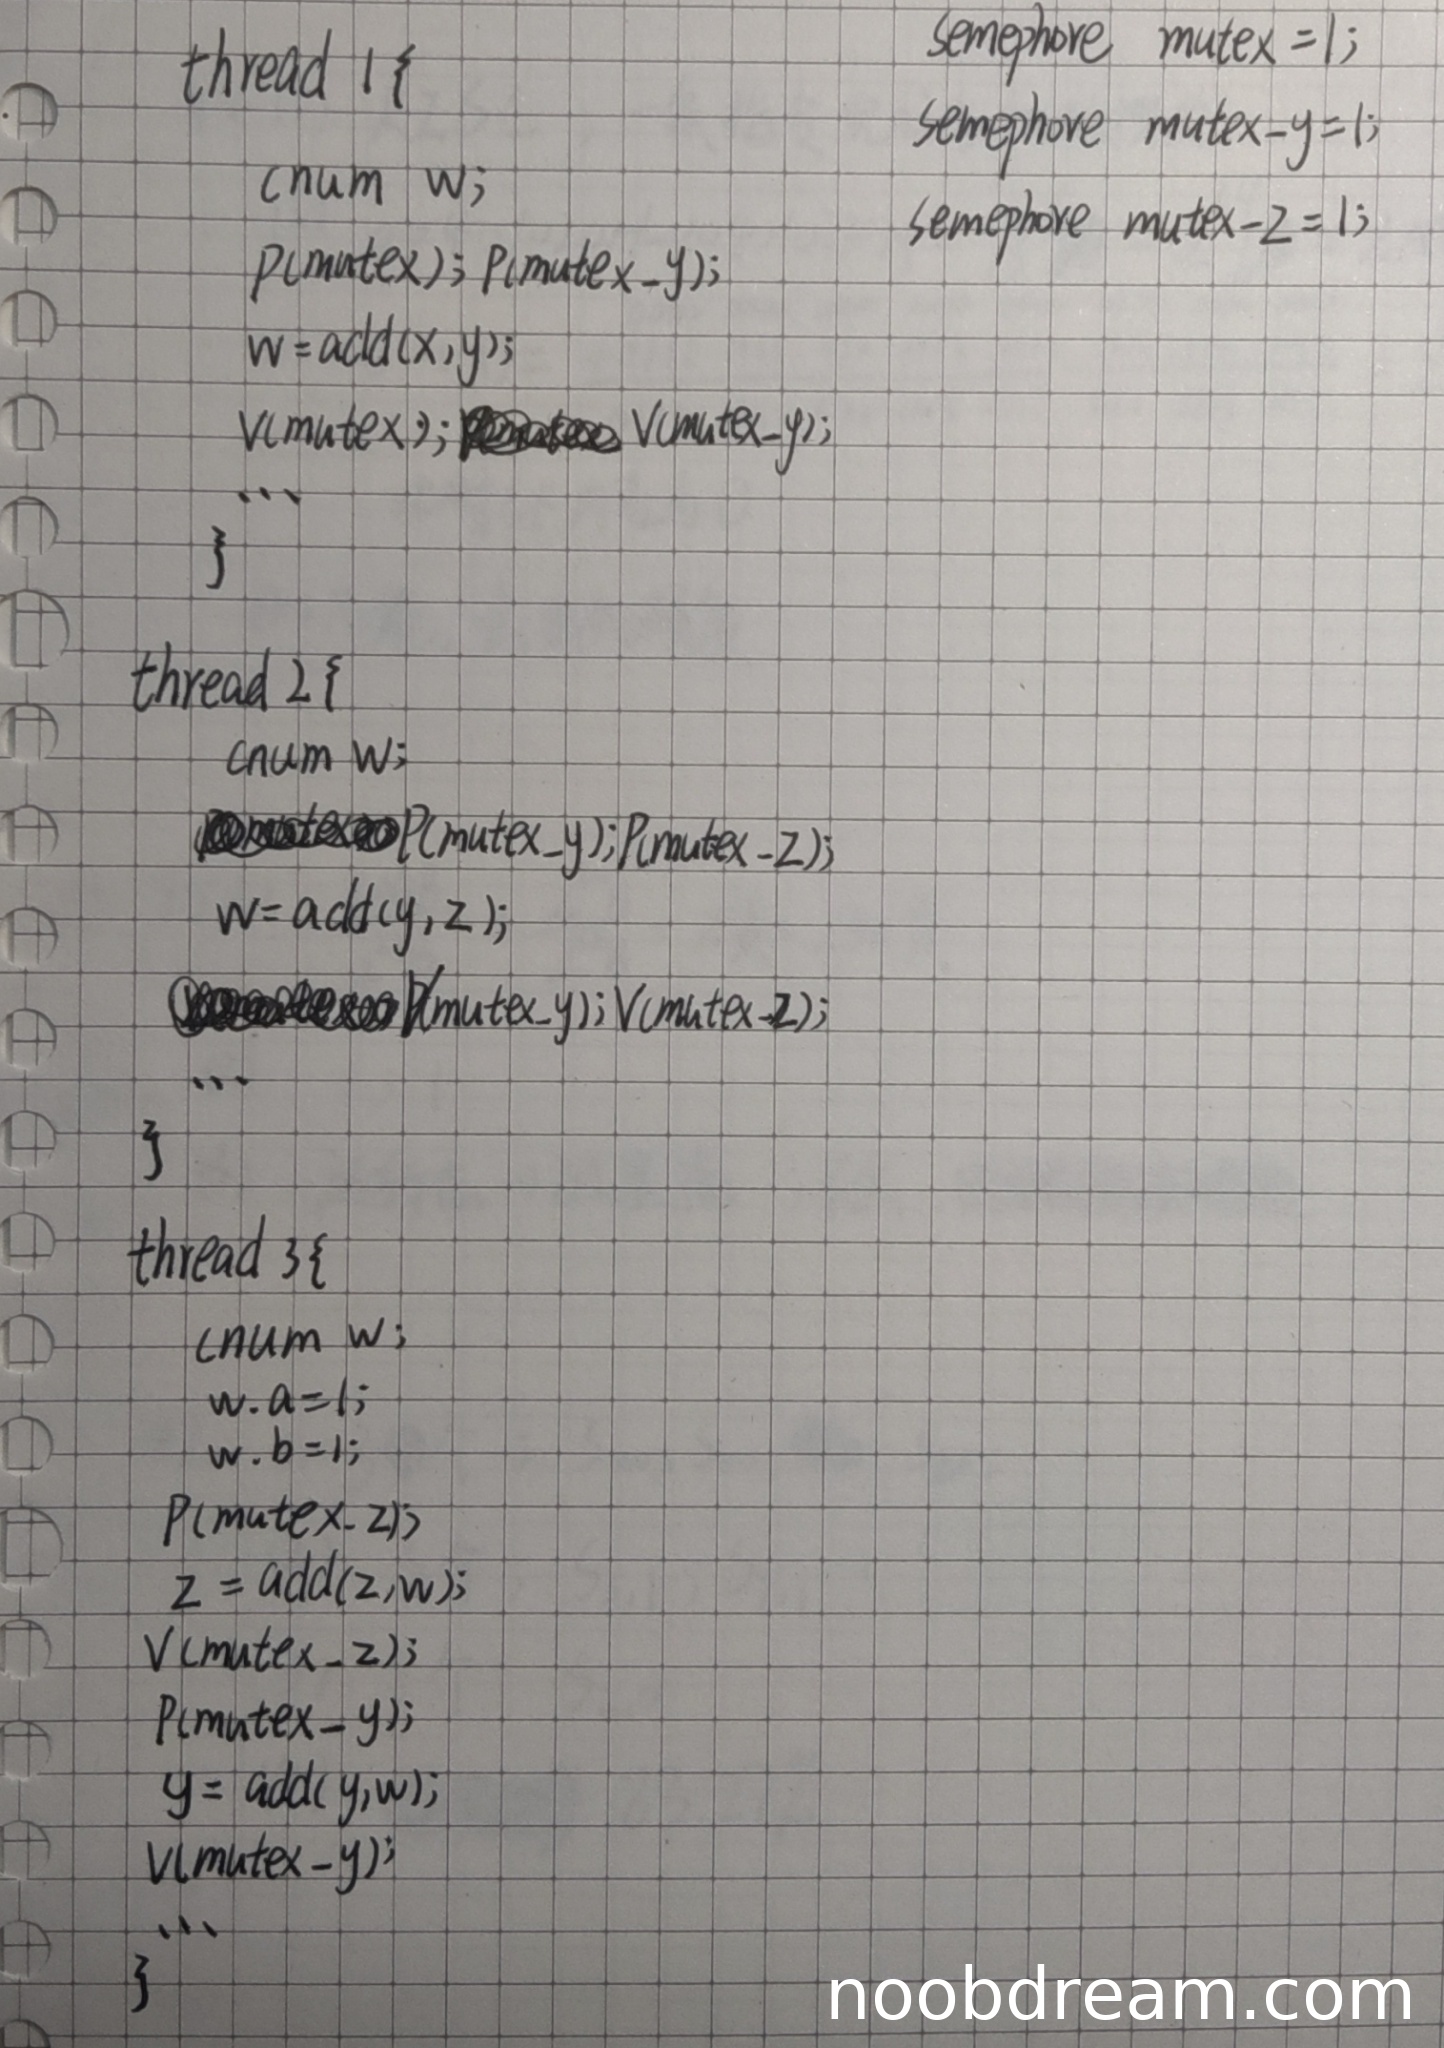 thread 1{
cnum w;
P(mutex); P(mutex_y);
w=add(x,y);
V(mutex); V(mutex_y);
...
}
semephore mutex=1;
semephore mutex-y=1;
semephore mutex-z=1;
thread 2{
cnum w;
P(mutex_y);P(mutex_z);
w=add(y,z);
V(mutex_y);V(mutex_z);
...
}
thread 3{
cnum w;
w.a=1;
w.b=1;
P(mutex_z);
z=add(z,w);
V(mutex_z);
P(mutex_y);
y=add(y,w);
V(mutex_y);
...
}
noobdream.com